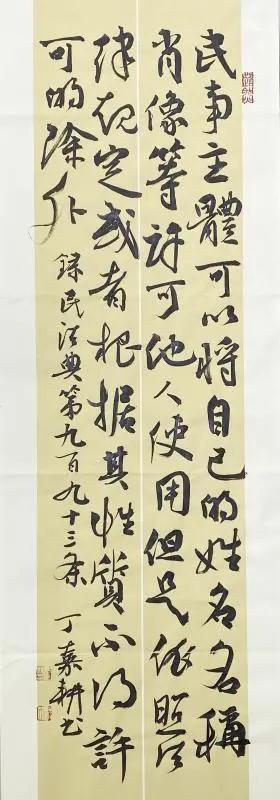 民事主體可以将自己的姓名名稱
肖像等許可他人使用但是依照法
律規定或者根據其性質不得許
可的除外
録民法典第九百九十三条 丁嘉耕书